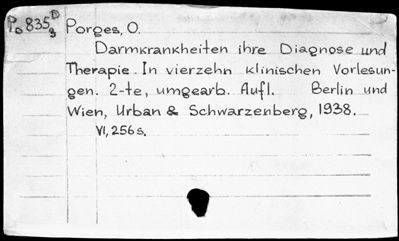 Po 835 D 3 Porges, O.
Darmkrankheiten ihre Diagnose und
Therapie. In vierzehn klinischen Vorlesun-
gen. 2-te, umgearb. Aufl. Berlin und
Wien, Urban & Schwarzenberg, 1938.
VI, 256 s.